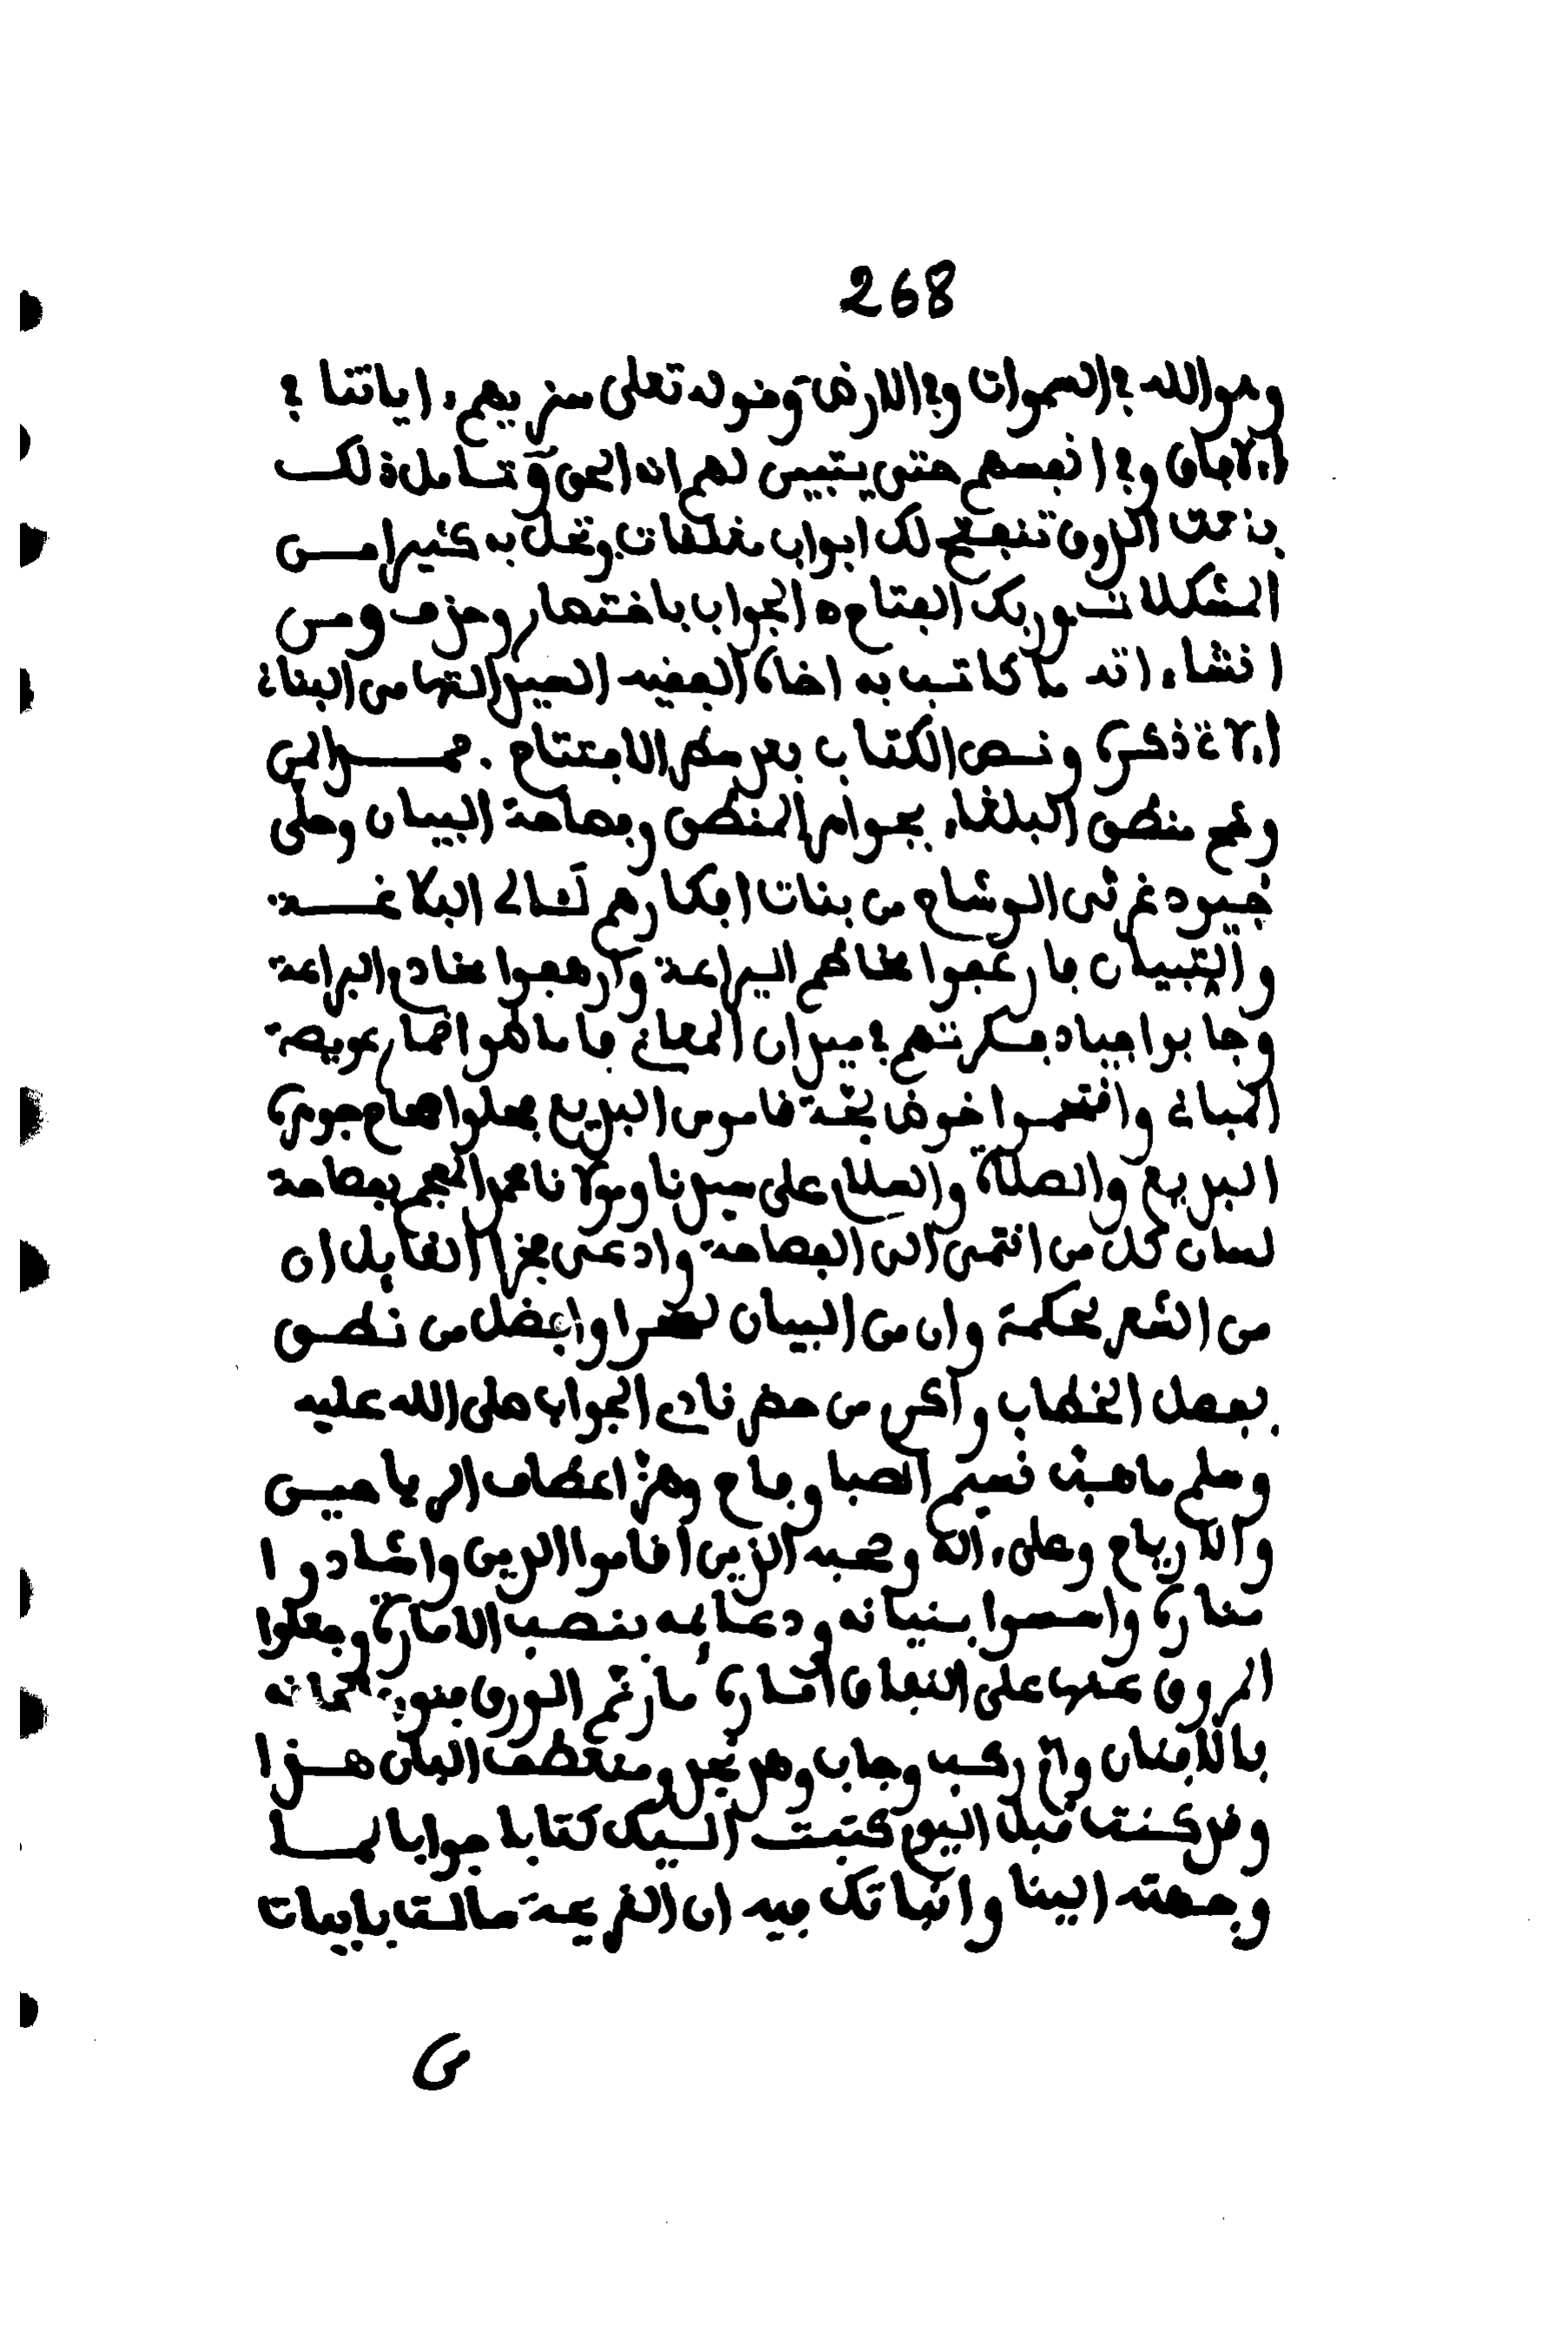 268
وهو الله في السموات وفي الارض وقوله تعلى سنريهم ءاياتنا في
الافاق وفي انفسهم حتى يتبين لهم انه الحق وتامل ذلك
بنعت الذوق تنفتح لك ابواب مغلقات وتحل به كثيرا من
المشكلات وربك الفتاح ه الجواب باختصار وحذف ومن
انشاءاته ما كاتب به اخاه الفقيه السيد التهامى البناني
الاتي ذكره ونص الكتاب بعد سطر الافتتاح . حمدا لمن
وشح منطق البلغاء بجواهر المنطق وفصاحة البيان وحلى
جيود غرثى الوشاح من بنات افكارهم لئالى البلاغة
والتبيان فارعفوا مخاطم اليراعة وارهفوا مخادم البراعة
وجابوا جياد فكرتهم في ميدان المعاني فاماطوا خمار عويصة
المباني واقتحموا خوض لجة قاموس البديع فجلوا صحاح جوهرى
البديع والصلاة والسلام على سيدنا ومولانا محمد المفحم بفصاحة
لسان كل من انتمى الى الفصاحة وادعى مجزا القايل ان
من الشعر لحكمة وان من البيان لسحرا وافضل من نطق
بفصل الخطاب واكرم من حضر نادى الجواب صلى الله عليه
وسلم ماهبت نسيم الصبا وفاح وهز اعطاف الرياحين
والادباح وعلى ءاله وصحبه الذين اقاموا الدين واشادوا
مناره واسسوا بنيانه ودعايمه بنصب الامارة وجعلوا
المروق عنها على النفاق امارة مارنم الورق فنون الحانه
بالافنان واثر ركب وجاب وهز نجد ومنعطف البان هذا
وقد كنت قبل اليوم كتبت اليك كتابا جوابا لما
وجهته الينا وانباتك فيه ان القريحة سالت بابيات